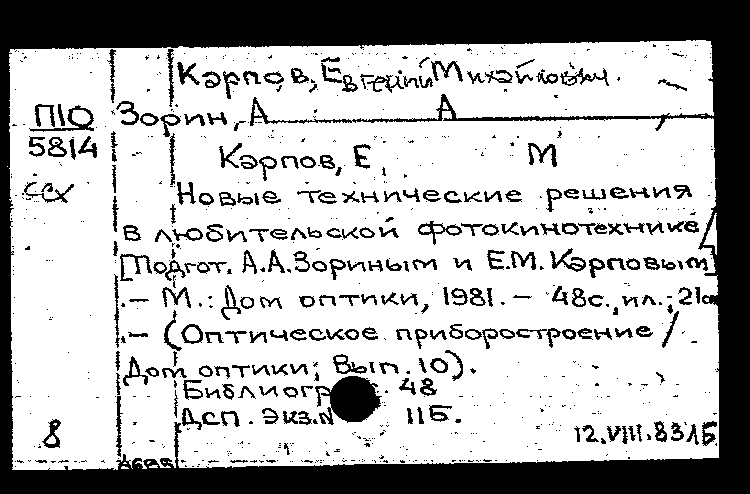 Карпов, Евгений Михайлович.
П10 Зорин, А А
5814 Карпов, Е. М
ссх Новые технические решения
в любительской фотокинотехнике /
[Подгот. А.А.Зориным и Е.М.Карповым]
.- М.: Дом оптики, 1981. - 48с., ил.; 21см
.- (Оптическое приборостроение /
Дом оптики; Вып. 10).
Библиогр с. 48
ДСП. Экз.N 11Б.
8 12.VIII.83 1Б